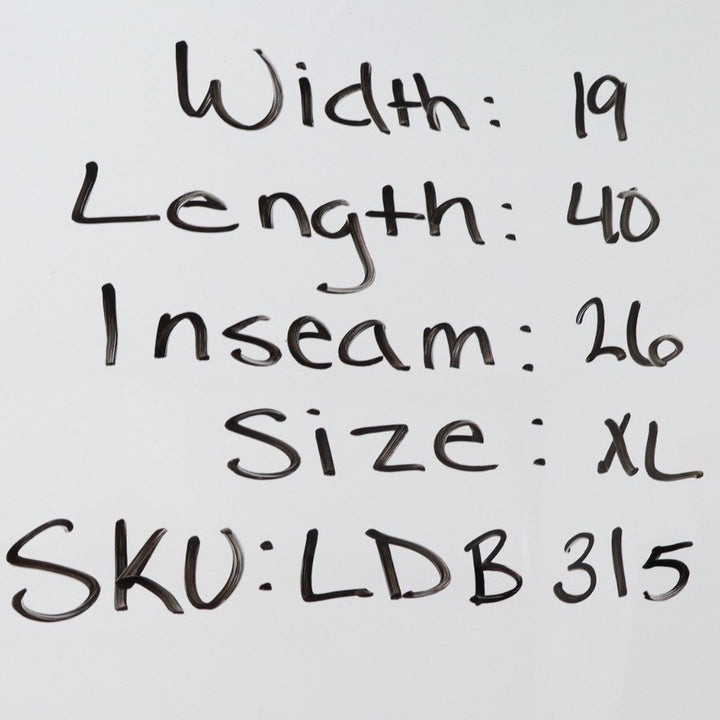 Width: 19
Length: 40
Inseam: 26
Size: XL
SKU: LDB 315